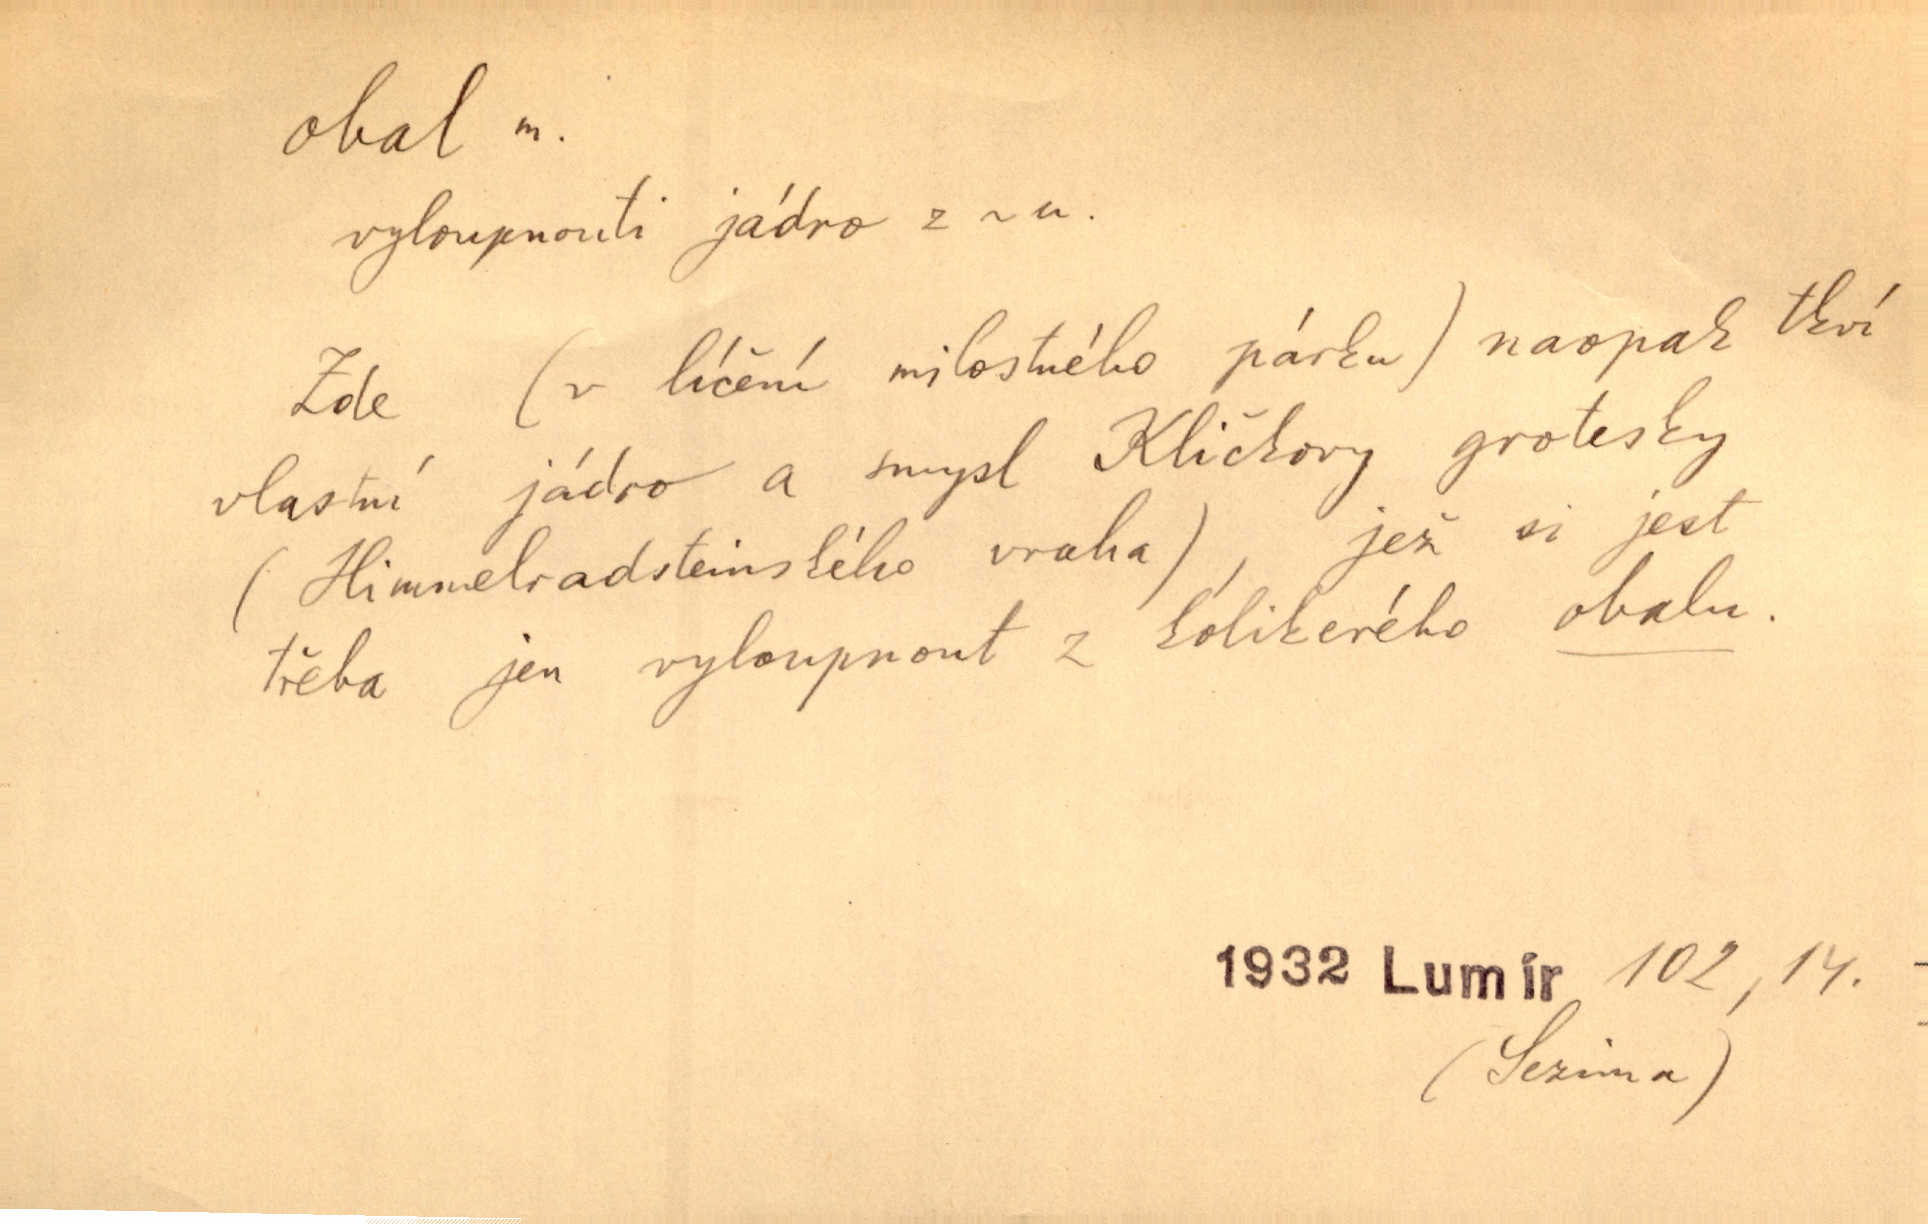 obal m.
vyloupnouti jádro z ~u.
Zde (v líčení milostného párku) naopak tkví
vlastní jádro a smysl Kličkovy grotesky
(Himmelradsteinského vraha), jež si jest
třeba jen vyloupnout z kólikerého obalu.
1932 Lumír 102, 14.
(Sezima)